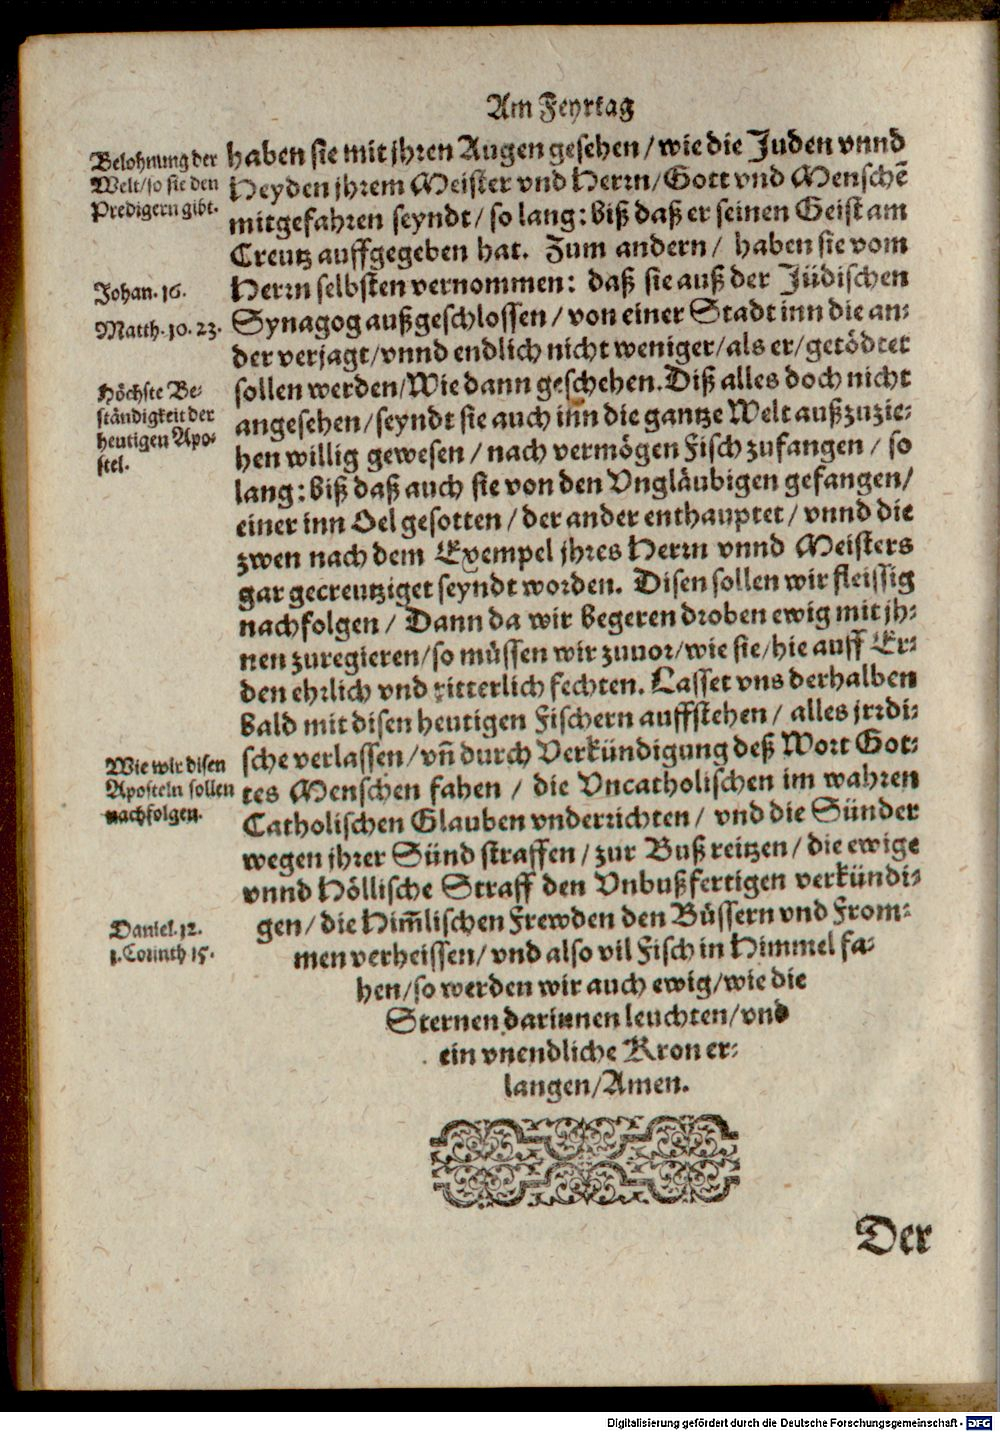 Am Feyrtag
Belohnung der
Welt/so sie den
Predigern gibt.
haben sie mit jhren Augen gesehen/wie die Juden vnnd
Heyden jhrem Meister vnd Herrn/Gott vnd Menschē
mitgefahren seyndt/so lang: biß daß er seinen Geist am
Creutz auffgegeben hat. Zum andern/ haben sie vom
Johan. 16.
Herrn selbsten vernommen: daß sie auß der Jüdischen
Matth. 10. 23.
Synagog außgeschlossen/von einer Stadt inn die an-
der verjagt/vnnd endlich nicht weniger/als er/getödtet
Höchste Be-
ständigkeit der
heutigen Apo-
stel.
sollen werden/Wie dann geschehen. Diß alles doch nicht
angesehen/seyndt sie auch inn die gantze Welt außzuzie-
hen willig gewesen/nach vermögen Fisch zufangen/so
lang: biß daß auch sie von den Vngläubigen gefangen/
einer inn Oel gesotten/der ander enthauptet/vnnd die
zwen nach dem Exempel jhres Herrn vnnd Meisters
gar gecreutziget seyndt worden. Disen sollen wir fleissig
nachfolgen/ Dann da wir begeren droben ewig mit jh-
nen zuregieren/so müssen wir zuuor/wie sie/hie auff Er-
den ehrlich vnd ritterlich fechten. Lasset vns derhalben
bald mit disen heutigen Fischern auffstehen/ alles jrrdi-
Wie wir disen
Aposteln sollen
nachfolgen.
sche verlassen/vñ durch Verkündigung deß Wort Got-
tes Menschen fahen / die Vncatholischen im wahren
Catholischen Glauben vnderrichten/ vnd die Sünder
wegen jhrer Sünd straffen/zur Buß reitzen/die ewige
vnnd Höllische Straff den Vnbußfertigen verkündi-
Daniel. 12.
1. Corinth 15.
gen/die Him̃lischen Frewden den Büssern vnd From-
men verheissen/vnd also vil Fisch in Himmel fa-
hen/so werden wir auch ewig/wie die
Sternen darinnen leuchten/vnd
ein vnendliche Kron er-
langen/Amen.
Der
Digitalisierung gefördert durch die Deutsche Forschungsgemeinschaft - DFG